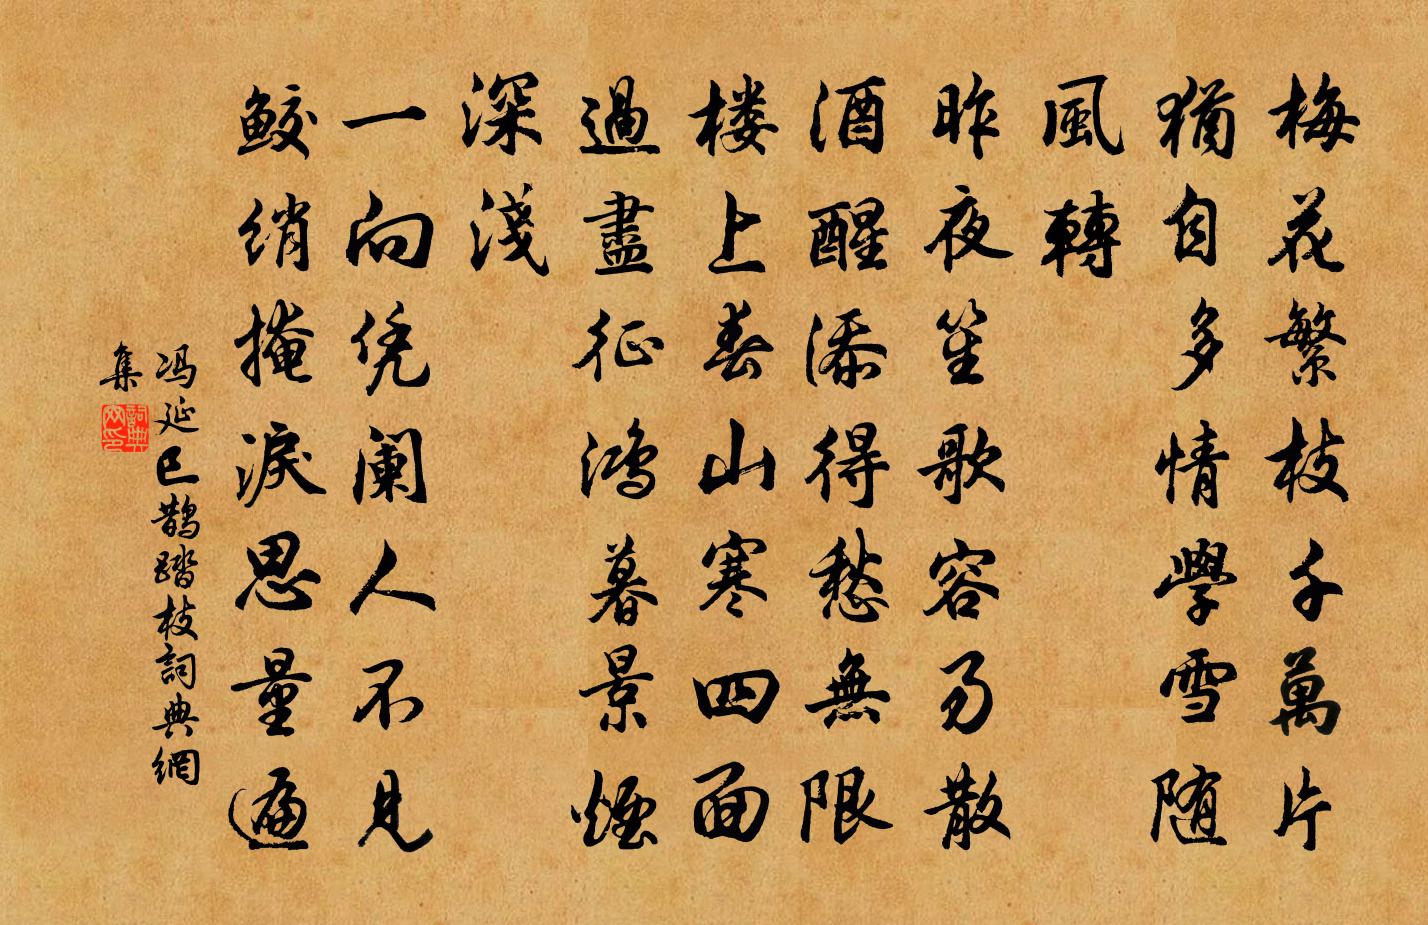 梅花繁枝千萬片
猶自多情學雪随
風轉
昨夜笙歌容易散
酒醒添得愁無限
楼上春山寒四面
過盡征鸿暮景煙
深淺
一向凭阑人不見
鮫绡掩淚思量遍
冯延巳鹊踏枝詞典網
集
詞典网印